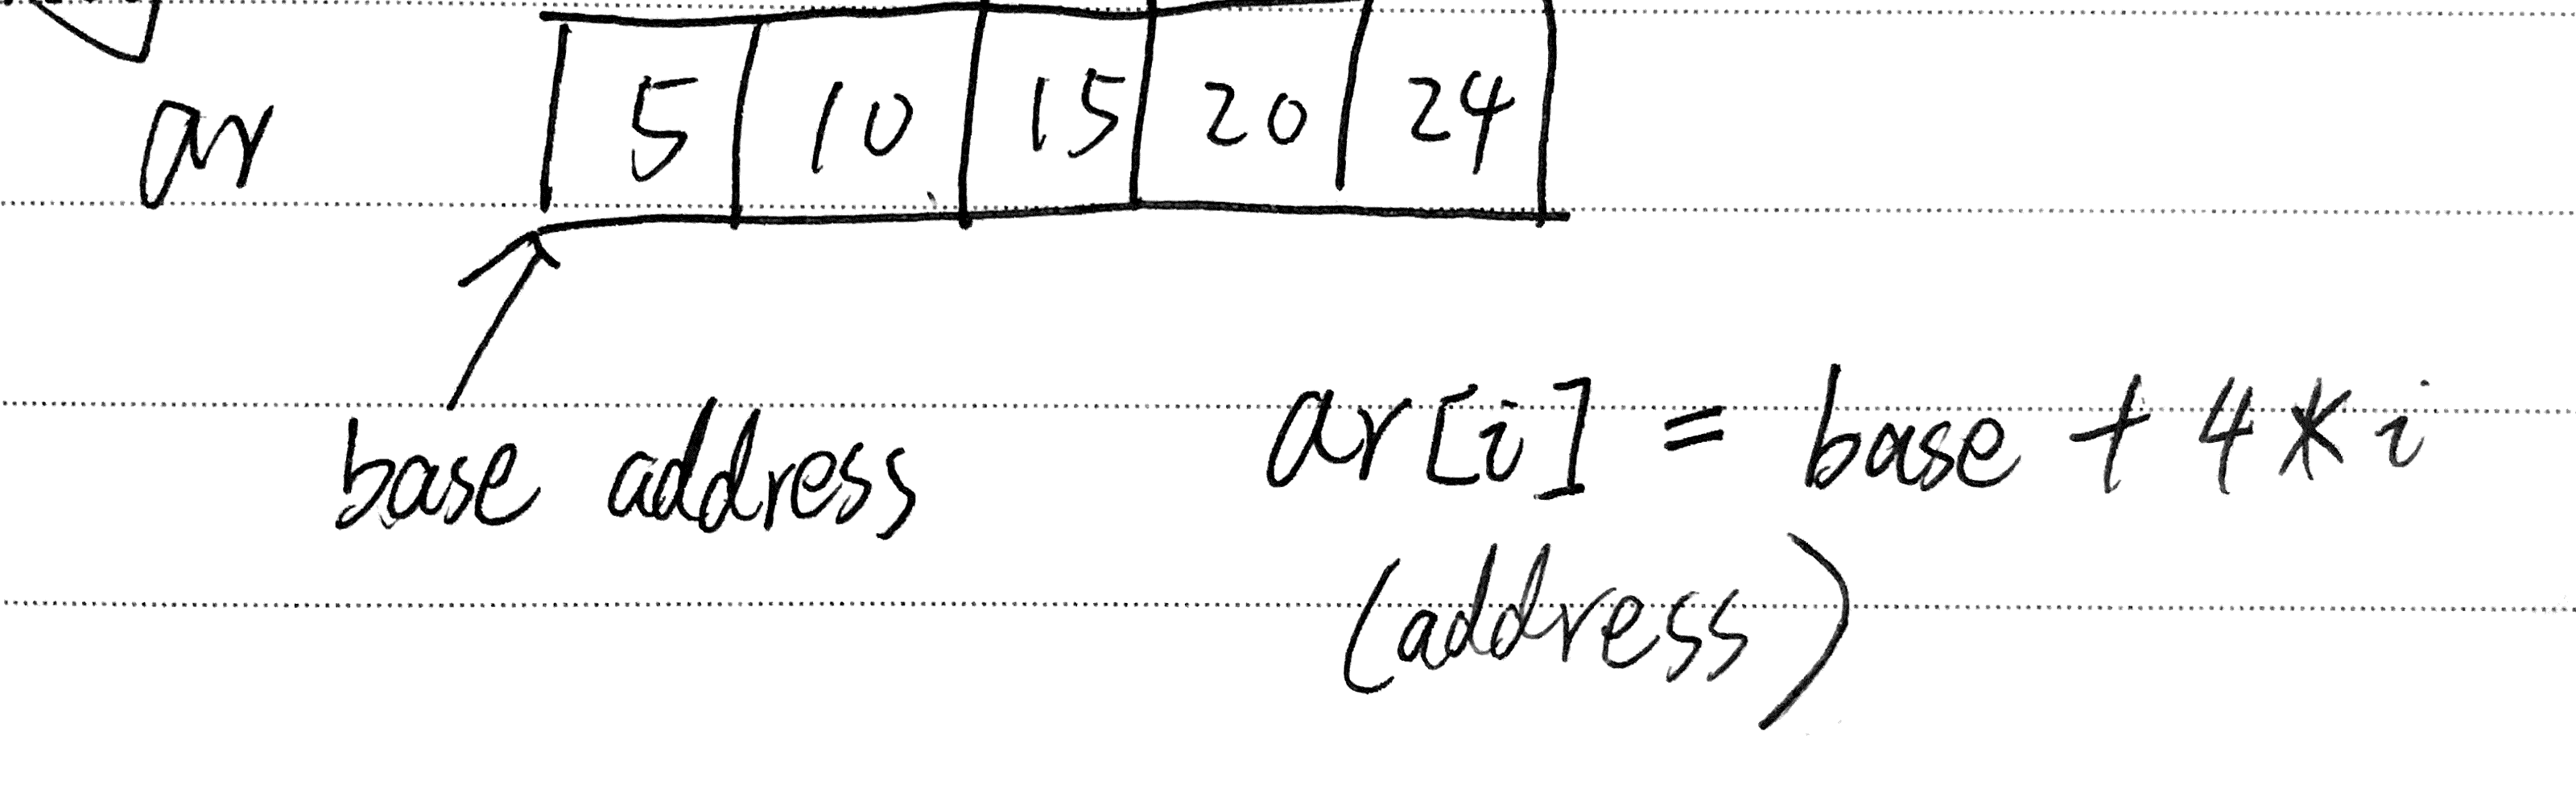 ar 5 10 15 20 24
base address ar[i] = base + 4 * i
(address)